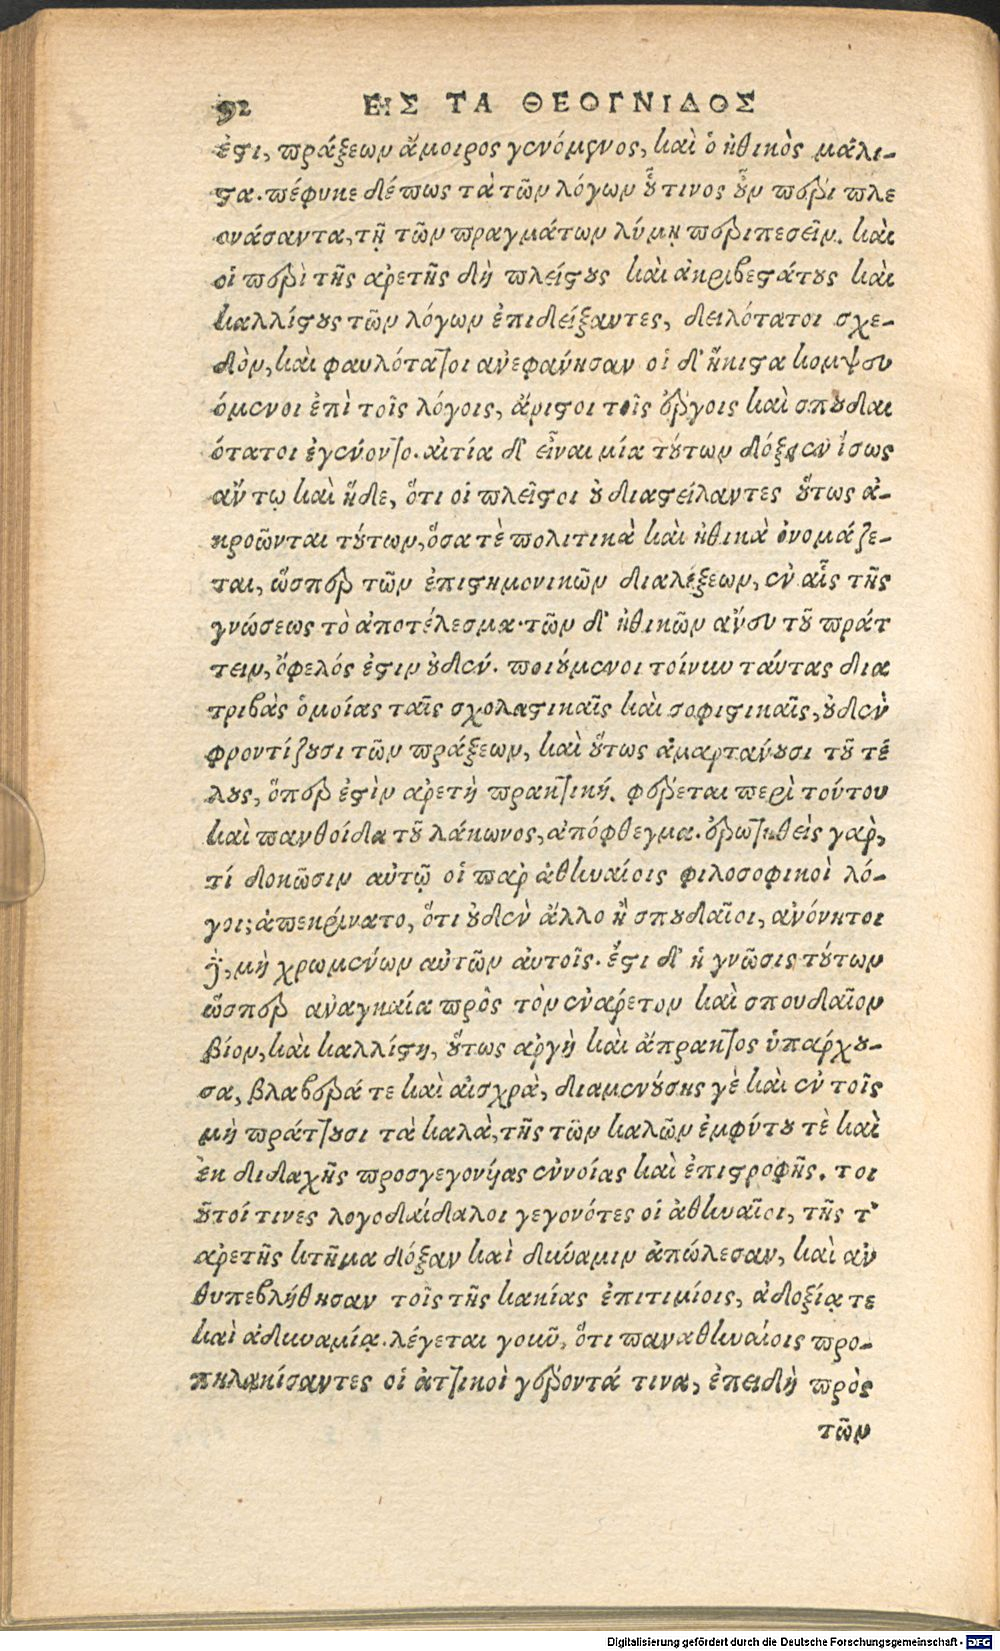 92 ΕΙΣ ΤΑ ΘΕΟΓΝΙΔΟΣ
ἐστι, πράξεων ἄμοιρος γενόμενος, καὶ ὁ ἠθικὸς μάλι-
στα. πέφυκε δέ πως τὰ τῶν λόγων οὗ τινος οὖν περὶ πλε
ονάσαντα, τῇ τῶν πραγμάτων λύμῃ περιπεσεῖν. καὶ
οἱ περὶ τῆς ἀρετῆς δὴ πλείστους καὶ ἀκριβεστάτους καὶ
καλλίστους τῶν λόγων ἐπιδείξαντες, δειλότατοι σχε-
δὸν, καὶ φαυλότατοι ἀνεφάνησαν οἱ δ' ἥκιστα κομψευ
όμενοι ἐπὶ τοῖς λόγοις, ἄριστοι τοῖς ἔργοις καὶ σπουδαι
ότατοι ἐγένοντο. αἰτία δ' εἶναι μία τούτων δόξειεν ἴσως
ἄν τῳ καὶ ἥδε, ὅτι οἱ πλεῖστοι οὐ διαστείλαντες οὕτως ἀ-
κροῶνται τούτων, ὅσα τὲ πολιτικὰ καὶ ἠθικὰ ὀνομάζε-
ται, ὥσπερ τῶν ἐπιστημονικῶν διαλέξεων, ἐν αἷς τῆς
γνώσεως τὸ ἀποτέλεσμα. τῶν δ' ἠθικῶν ἄνευ τοῦ πράτ
τειν, ὄφελός ἐστιν οὐδέν. ποιούμενοι τοίνυν ταύτας δια
τριβὰς ὁμοίας ταῖς σχολαστικαῖς καὶ σοφιστικαῖς, οὐδὲν
φροντίζουσι τῶν πράξεων, καὶ οὕτως ἁμαρτάνουσι τοῦ τέ
λους, ὅπερ ἐστὶν ἀρετὴ πρακτική. φέρεται περὶ τούτου
καὶ πανθοίδα τοῦ λάκωνος, ἀπόφθεγμα. ἐρωτηθεὶς γὰρ,
τί δοκῶσιν αὐτῷ οἱ παρ ἀθηναίοις φιλοσοφικοὶ λό-
γοι; ἀπεκρίνατο, ὅτι οὐδὲν ἄλλο ἢ σπουδαῖοι, ἀνόνητοι
δὲ, μὴ χρωμένων αὐτῶν αὐτοῖς. ἔστι δ' ἡ γνῶσις τούτων
ὥσπερ ἀναγκαία πρὸς τὸν ἐνάρετον καὶ σπουδαῖον
βίον, καὶ καλλίστη, οὕτως ἀργὴ καὶ ἄπρακτος ὑπάρχου-
σα, βλαβερά τε καὶ αἰσχρὰ, διαμενούσης γὲ καὶ ἐν τοῖς
μὴ πράττουσι τὰ καλὰ, τῆς τῶν καλῶν ἐμφύτου τὲ καὶ
ἐκ διδαχῆς προσγεγονυίας ἐννοίας καὶ ἐπιστροφῆς. τοι
οῦτοί τινες λογοδαίδαλοι γεγονότες οἱ ἀθηναῖοι, τῆς τ'
ἀρετῆς κτῆμα δόξαν καὶ δύναμιν ἀπώλεσαν, καὶ ἀν
θυπεβλήθησαν τοῖς τῆς κακίας ἐπιτιμίοις, ἀδοξίᾳ τε
καὶ ἀδυναμίᾳ. λέγεται γοῦν, ὅτι παναθηναίοις προ-
πηλακίσαντες οἱ ἀττικοὶ γέροντά τινα, ἐπειδὴ πρὸς
τῶν
Digitalisierung gefördert durch die Deutsche Forschungsgemeinschaft - DFG